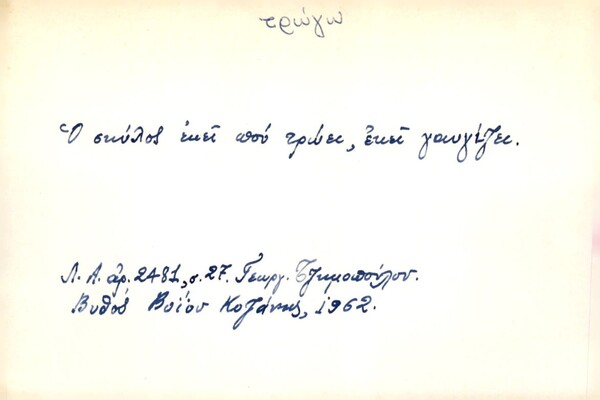 τρώγω
Ὁ σκύλος ἐκεῖ ποὺ τρώει, ἐκεῖ γαυγίζει.
Λ. Α. ἀρ. 2481, σ. 27. Γεωργ. Τζημοπούλου.
Βυθός Βοΐου Κοζάνης, 1962.